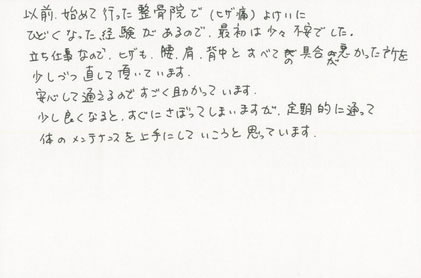 以前、始めて行った整骨院で(ヒザ痛)よけいに
ひどくなった経験があるので、最初は少々不安でした。
立ち仕事なので、ヒザも、腰、肩、背中とすべての具合が悪かった所を
少しづつ直して頂いています。
安心して通えるのですごく助かっています。
少し良くなると、すぐにさぼってしまいますが、定期的に通って
体のメンテナンスを上手にしていこうと思っています.